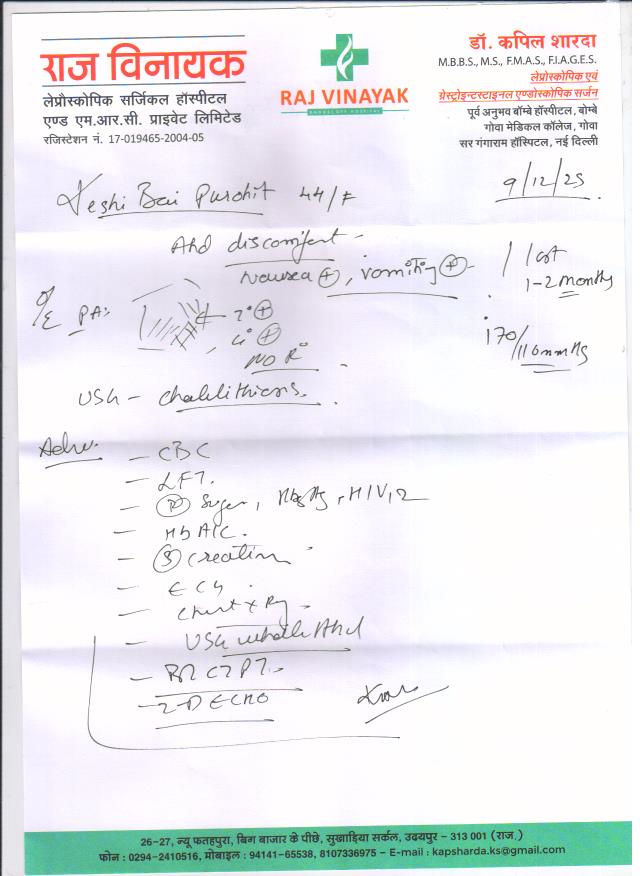 राज विनायक
लेप्रौस्कोपिक सर्जिकल हॉस्पीटल
एण्ड एम.आर.सी. प्राइवेट लिमिटेड
रजिस्टेशन नं. 17-019465-2004-05
RAJ VINAYAK
ENDOSCOPY HOSPITAL
डॉ. कपिल शारदा
M.B.B.S., M.S., F.M.A.S., F.I.A.G.E.S.
लेप्रोस्कोपिक एवं
ग्रेस्ट्रोइन्टेस्टाइनल एण्डोस्कोपिक सर्जन
पूर्व अनुभव बॉम्बे हॉस्पीटल, बोम्बे
गोवा मेडिकल कॉलेज, गोवा
सर गंगाराम हॉस्पिटल, नई दिल्ली
9/12/25
Bai Purohit 44/F
Abd discomfort
Nausea +, vomiting +
1-2 months
O/E PA:
170/110mmHg
NO R°
USG - Cholelithiasis.
Adv.
- CBC
- LFT.
- (R) Sugar, HbsAg, HIV1,2
- HbA1C.
- (S) Creatinine
- ECG
- Chest X Ray
- USG whole Abd
- BT CT PT.
- 2-D ECHO
26-27, न्यू फतहपुरा, बिग बाजार के पीछे, सुखाड़िया सर्कल, उदयपुर - 313 001 (राज.)
फोन : 0294-2410516, मोबाइल : 94141-65538, 8107336975 - E-mail : kapsharda.ks@gmail.com